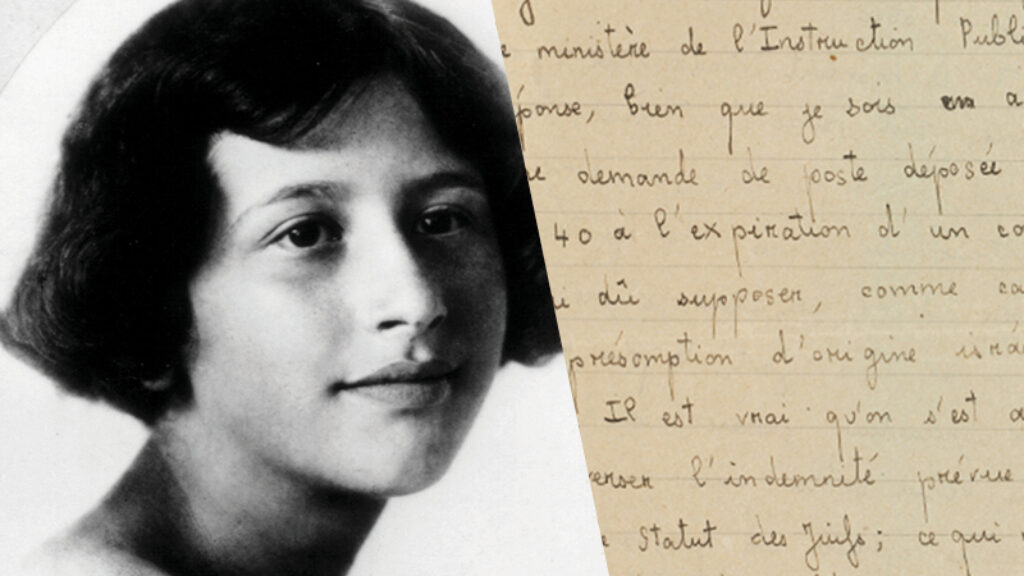 ministère de l'Instruction Publi
ponse, bien que je sois en a
demande de poste déposée
40 à l'expiration d'un co
i dû supposer, comme ca
présomption d'origine isra
Il est vrai qu'on s'est a
verser l'indemnité prévue
Statut des Juifs; ce qui